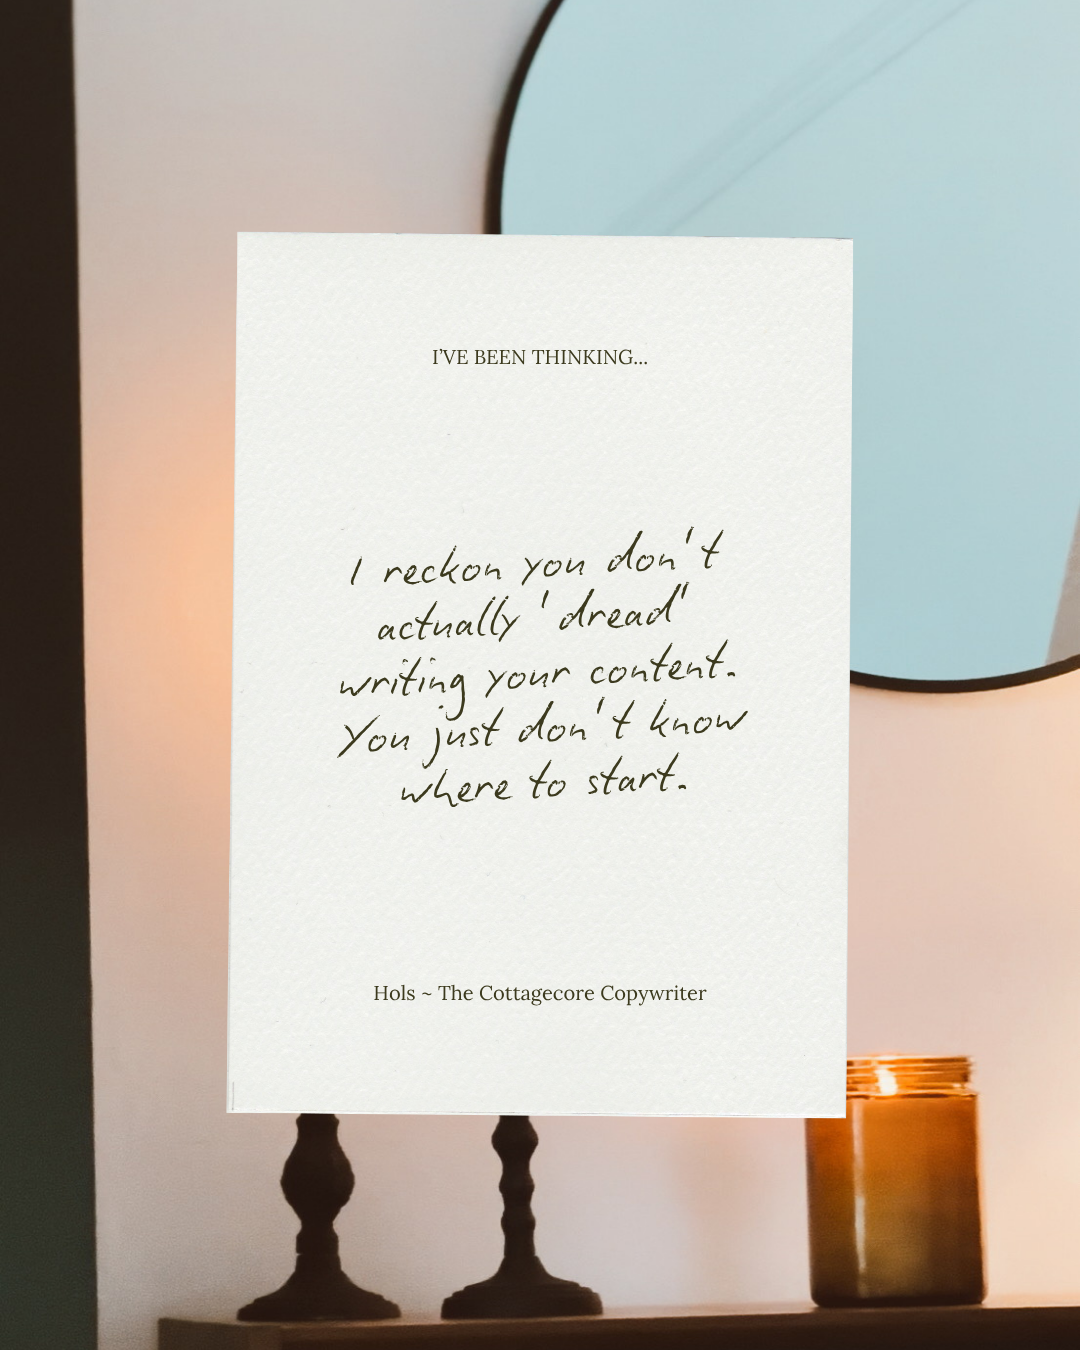 I'VE BEEN THINKING...
I reckon you don't
actually 'dread'
writing your content.
You just don't know
where to start.
Hols ~ The Cottagecore Copywriter